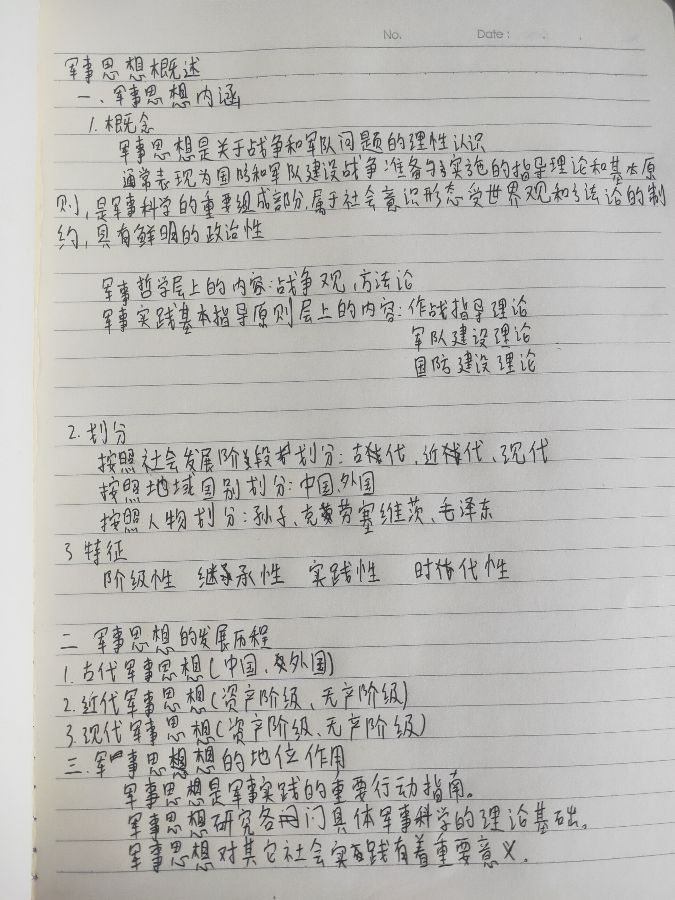 No. Date:
军事思想概述
一、军事思想内涵
1.概念
军事思想是关于战争和军队问题的理性认识
通常表现为国防和军队建设战争准备与实施的指导理论和基本原
则,是军事科学的重要组成部分.属于社会意识形态受世界观和方法论的制
约,具有鲜明的政治性
军事哲学层上的内容:战争观、方法论
军事实践基本指导原则层上的内容:作战指导理论
军队建设理论
国防建设理论
2.划分
按照社会发展阶段划分:古代、近代、现代
按照地域国别划分:中国、外国
按照人物划分:孙子、克劳塞维茨、毛泽东
3特征
阶级性 继承性 实践性 时代性
二 军事思想的发展历程
1.古代军事思想(中国、外国)
2.近代军事思想(资产阶级、无产阶级)
3.现代军事思想(资产阶级、无产阶级)
三.军事思想的地位作用
军事思想是军事实践的重要行动指南。
军事思想研究各门具体军事科学的理论基础。
军事思想对其它社会实践有着重要意义.